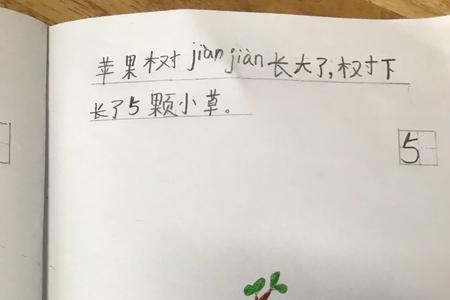 苹果树jiàn jiàn长大了,树下
长了5颗小草。
5